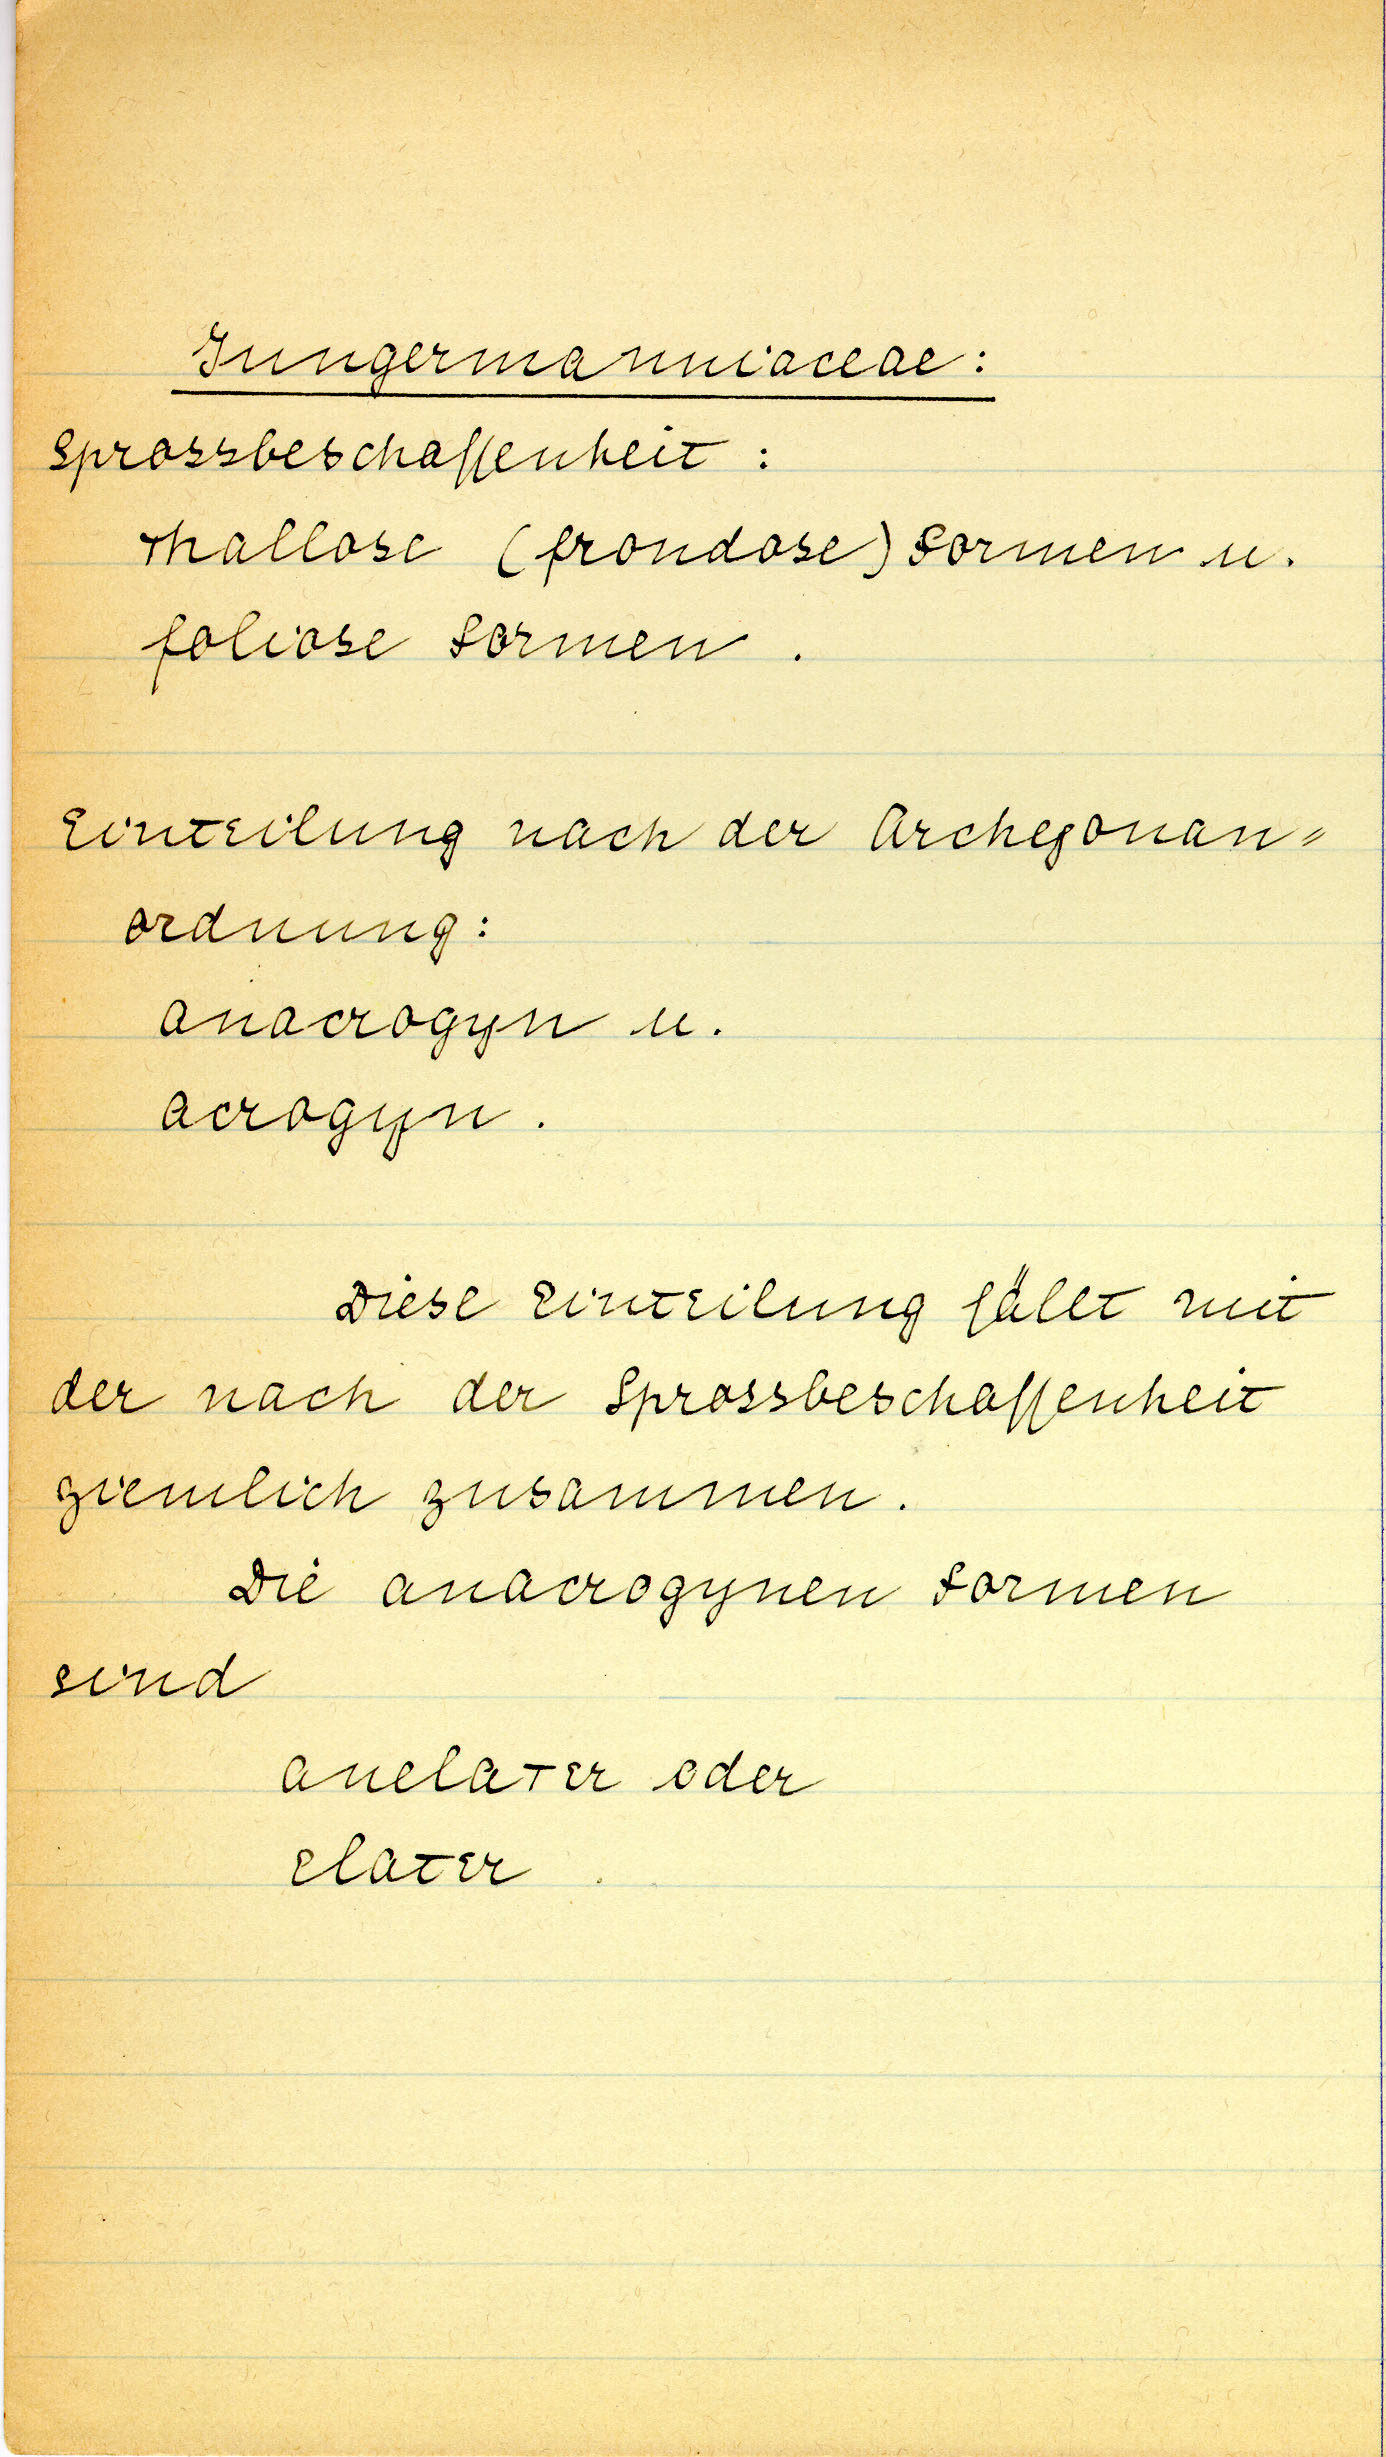 Jungermanniaceae:
Sprossbeschaffenheit :
thallose (frondose) Formen u.
foliose Formen .
Einteilung nach der Archegonan=
ordnung:
anacrogyn u.
acrogyn .
Diese Einteilung fällt mit
der nach der Sprossbeschaffenheit
ziemlich zusammen .
Die anacrogynen Formen
sind
anelater oder
elater .